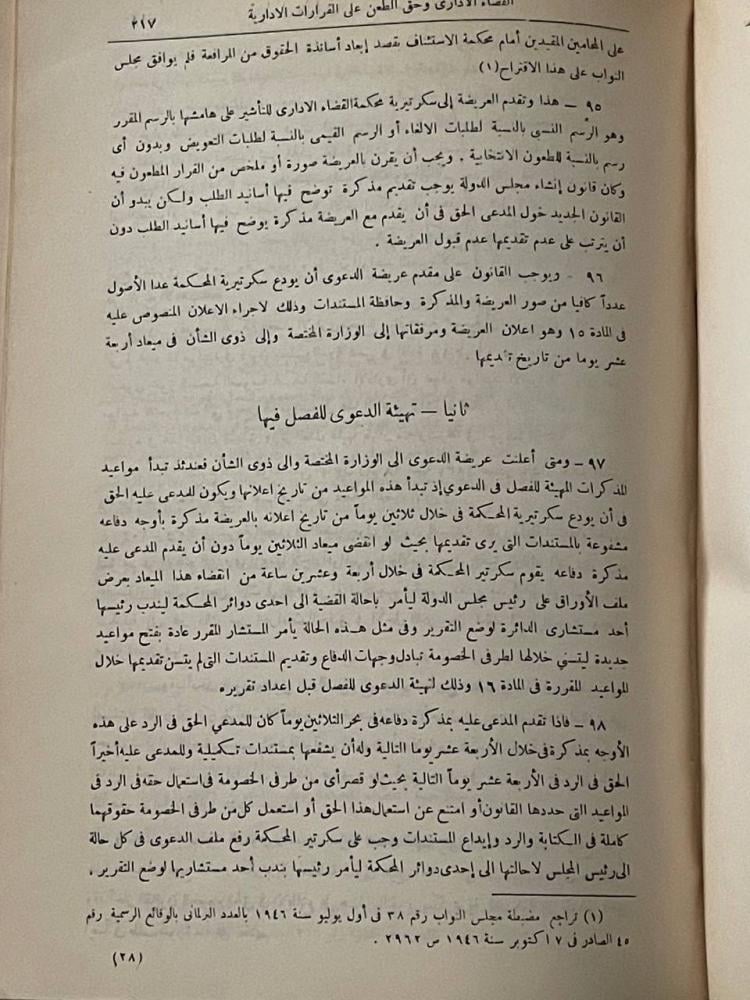 القضاء الادارى وحق الطعن على القرارات الادارية
٢١٧
على المحامين المقيدين أمام محكمة الاستئناف بقصد إبعاد أساتذة الحقوق من المرافعة فلم يوافق مجلس
النواب على هذا الاقتراح(١)
٩٥ — هذا وتقدم العريضة إلى سكرتيرية محكمة القضاء الادارى للتأشير على هامشها بالرسم المقرر
وهو الرسم النسبى بالنسبة لطلبات الالغاء أو الرسم القيمى بالنسبة لطلبات التعويض وبدون أى
رسم بالنسبة للطعون الانتخابية . ويجب أن يقرن بالعريضة صورة أو ملخص من القرار المطعون فيه
وكان قانون إنشاء مجلس الدولة يوجب تقديم مذكرة توضح فيها أسانيد الطلب ولكن يبدو أن
القانون الجديد خول المدعى الحق فى أن يقدم مع العريضة مذكرة يوضح فيها أسانيد الطلب دون
أن يترتب على عدم تقديمها عدم قبول العريضة .
٩٦ - ويوجب القانون على مقدم عريضة الدعوى أن يودع سكرتيرية المحكمة عدا الأصول
عدداً كافيا من صور العريضة والمذكرة وحافظة المستندات وذلك لاجراء الاعلان المنصوص عليه
فى المادة ١٥ وهو اعلان العريضة ومرفقاتها إلى الوزارة المختصة وإلى ذوى الشأن فى ميعاد أربعة
عشر يوما من تاريخ تقديمها .
ثانيا — تهيئة الدعوى للفصل فيها
٩٧ — ومتى أعلنت عريضة الدعوى الى الوزارة المختصة والى ذوى الشأن فعندئذ تبدأ مواعيد
المذكرات المهيئة للفصل فى الدعوى إذ تبدأ هذه المواعيد من تاريخ اعلانها ويكون للمدعى عليه الحق
فى أن يودع سكرتيرية المحكمة فى خلال ثلاثين يوماً من تاريخ اعلانه بالعريضة مذكرة بأوجه دفاعه
مشفوعة بالمستندات التى يرى تقديمها بحيث لو انقضى ميعاد الثلاثين يوماً دون أن يقدم المدعى عليه
مذكرة دفاعه يقوم سكرتير المحكمة فى خلال أربعة وعشرين ساعة من انقضاء هذا الميعاد بعرض
ملف الأوراق على رئيس مجلس الدولة ليأمر باحالة القضية الى احدى دوائر المحكمة ليندب رئيسها
أحد مستشارى الدائرة لوضع التقرير وفى مثل هذه الحالة يأمر المستشار المقرر عادة بفتح مواعيد
جديدة ليتسنى خلالها لطرفى الخصومة تبادل وجهات الدفاع وتقديم المستندات التى لم يتسن تقديمها خلال
المواعيد المقررة فى المادة ١٦ وذلك لتهيئة الدعوى للفصل قبل اعداد تقريره.
٩٨ — فاذا تقدم المدعى عليه بمذكرة دفاعه فى بحر الثلاثين يوماً كان للمدعى الحق فى الرد على هذه
الأوجه بمذكرة فى خلال الأربعة عشر يوما التالية وله أن يشفعها بمستندات تكميلية وللمدعى عليه أخيراً
الحق فى الرد فى الأربعة عشر يوماً التالية بحيث لو قصر أى من طرفى الخصومة فى استعمال حقه فى الرد فى
المواعيد التى حددها القانون أو امتنع عن استعمال هذا الحق أو استعمل كل من طرفى الخصومة حقوقهما
كاملة فى الكتابة والرد وإيداع المستندات وجب على سكرتير المحكمة رفع ملف الدعوى فى كل حالة
الى رئيس المجلس لاحالتها الى إحدى دوائر المحكمة ليأمر رئيسها بندب أحد مستشاريها لوضع التقرير .
(١) تراجع مضبطة مجلس النواب رقم ٣٨ فى أول يوليو سنة ١٩٤٦ بالعدد البرلمانى بالوقائع الرسمية رقم
٤٥ الصادر فى ١٧ كتوبر سنة ١٩٤٦ ص ٢٩٦٢ .
(٢٨)